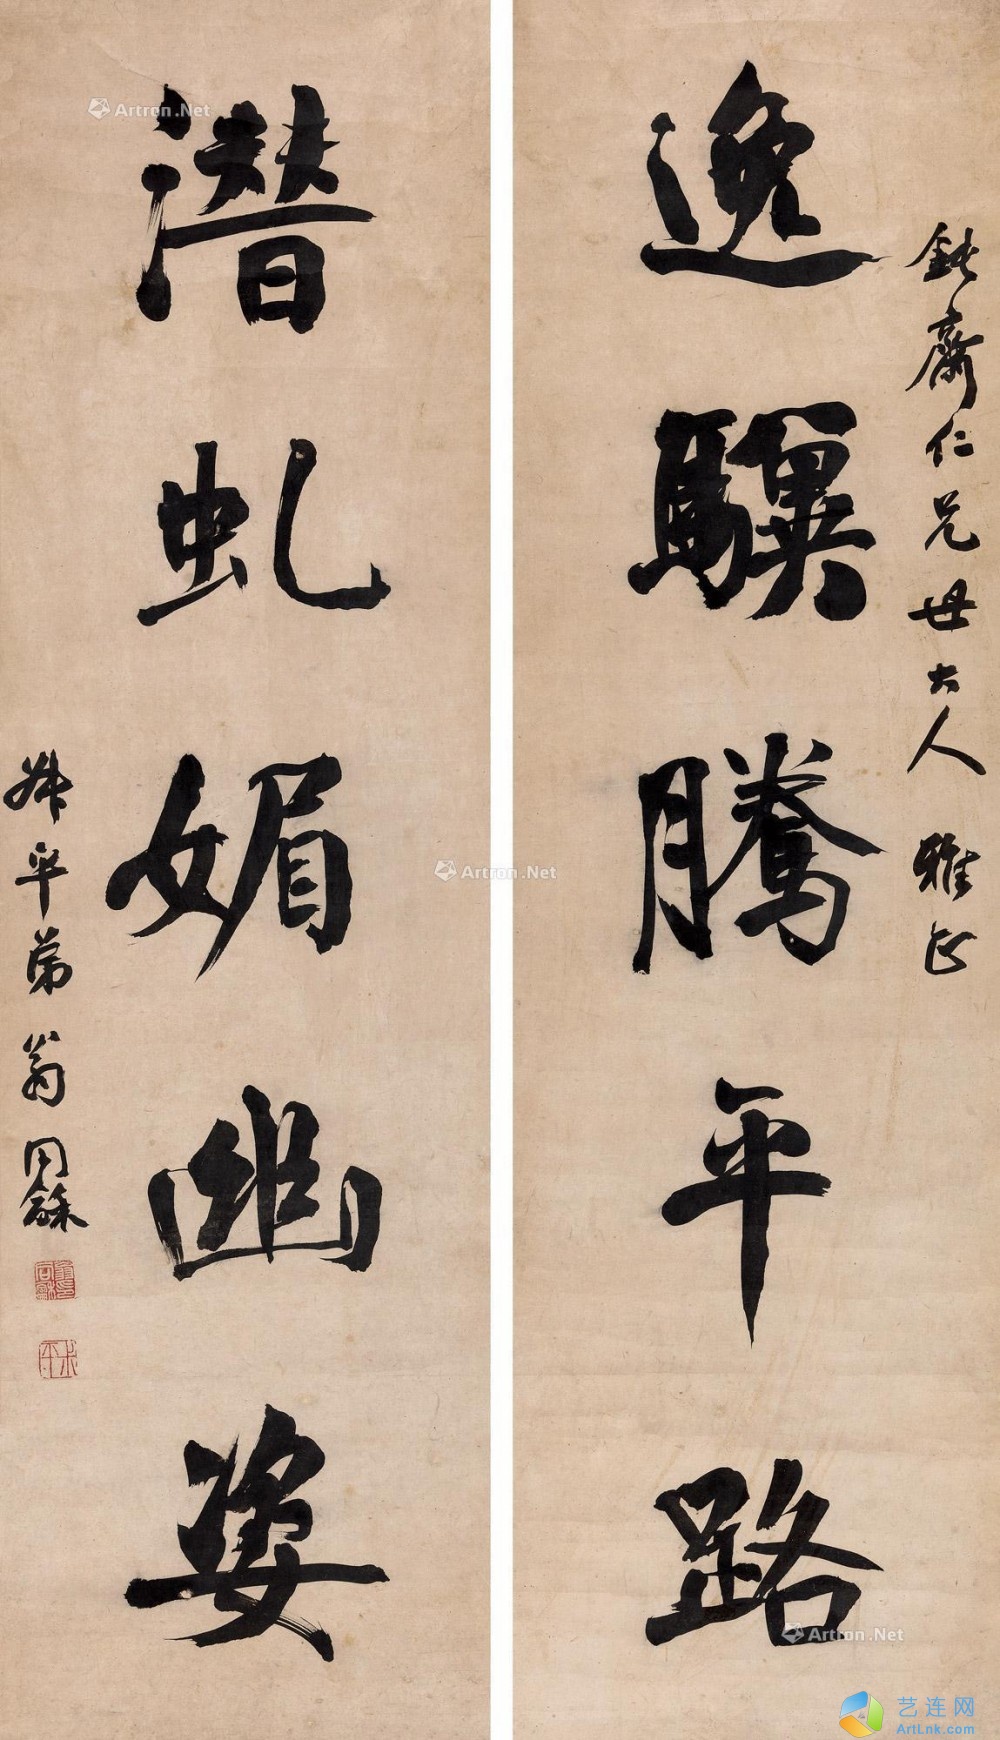 鈍齋仁兄世大人 雅正
逸驥騰平路
潛虬媚幽姿
叔平弟翁同龢
Artron.Net
Artron.Net
Artron.Net
艺连网
ArtLnk.com